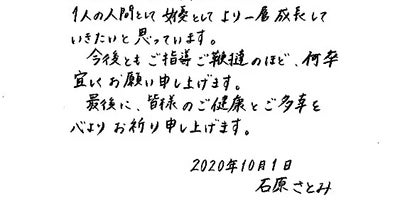 1人の人間として 女優として より一層 成長して
いきたいと思っています。
今後とも ご指導ご鞭撻のほど、何卒
宜しくお願い申し上げます。
最後に、皆様のご健康とご多幸を
心より お祈り申し上げます。
2020年10月1日
石原さとみ